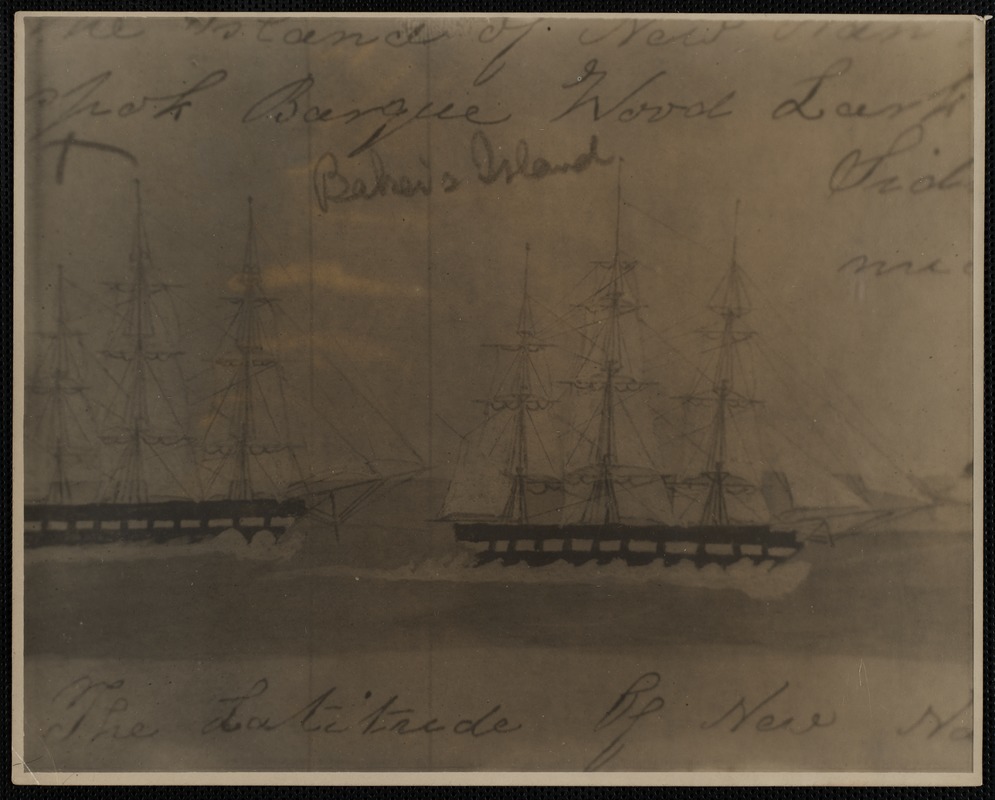 The Island of New Nan
Spok Barque Wood Lark
Baker's Island
Sid
The Latitude Of New N